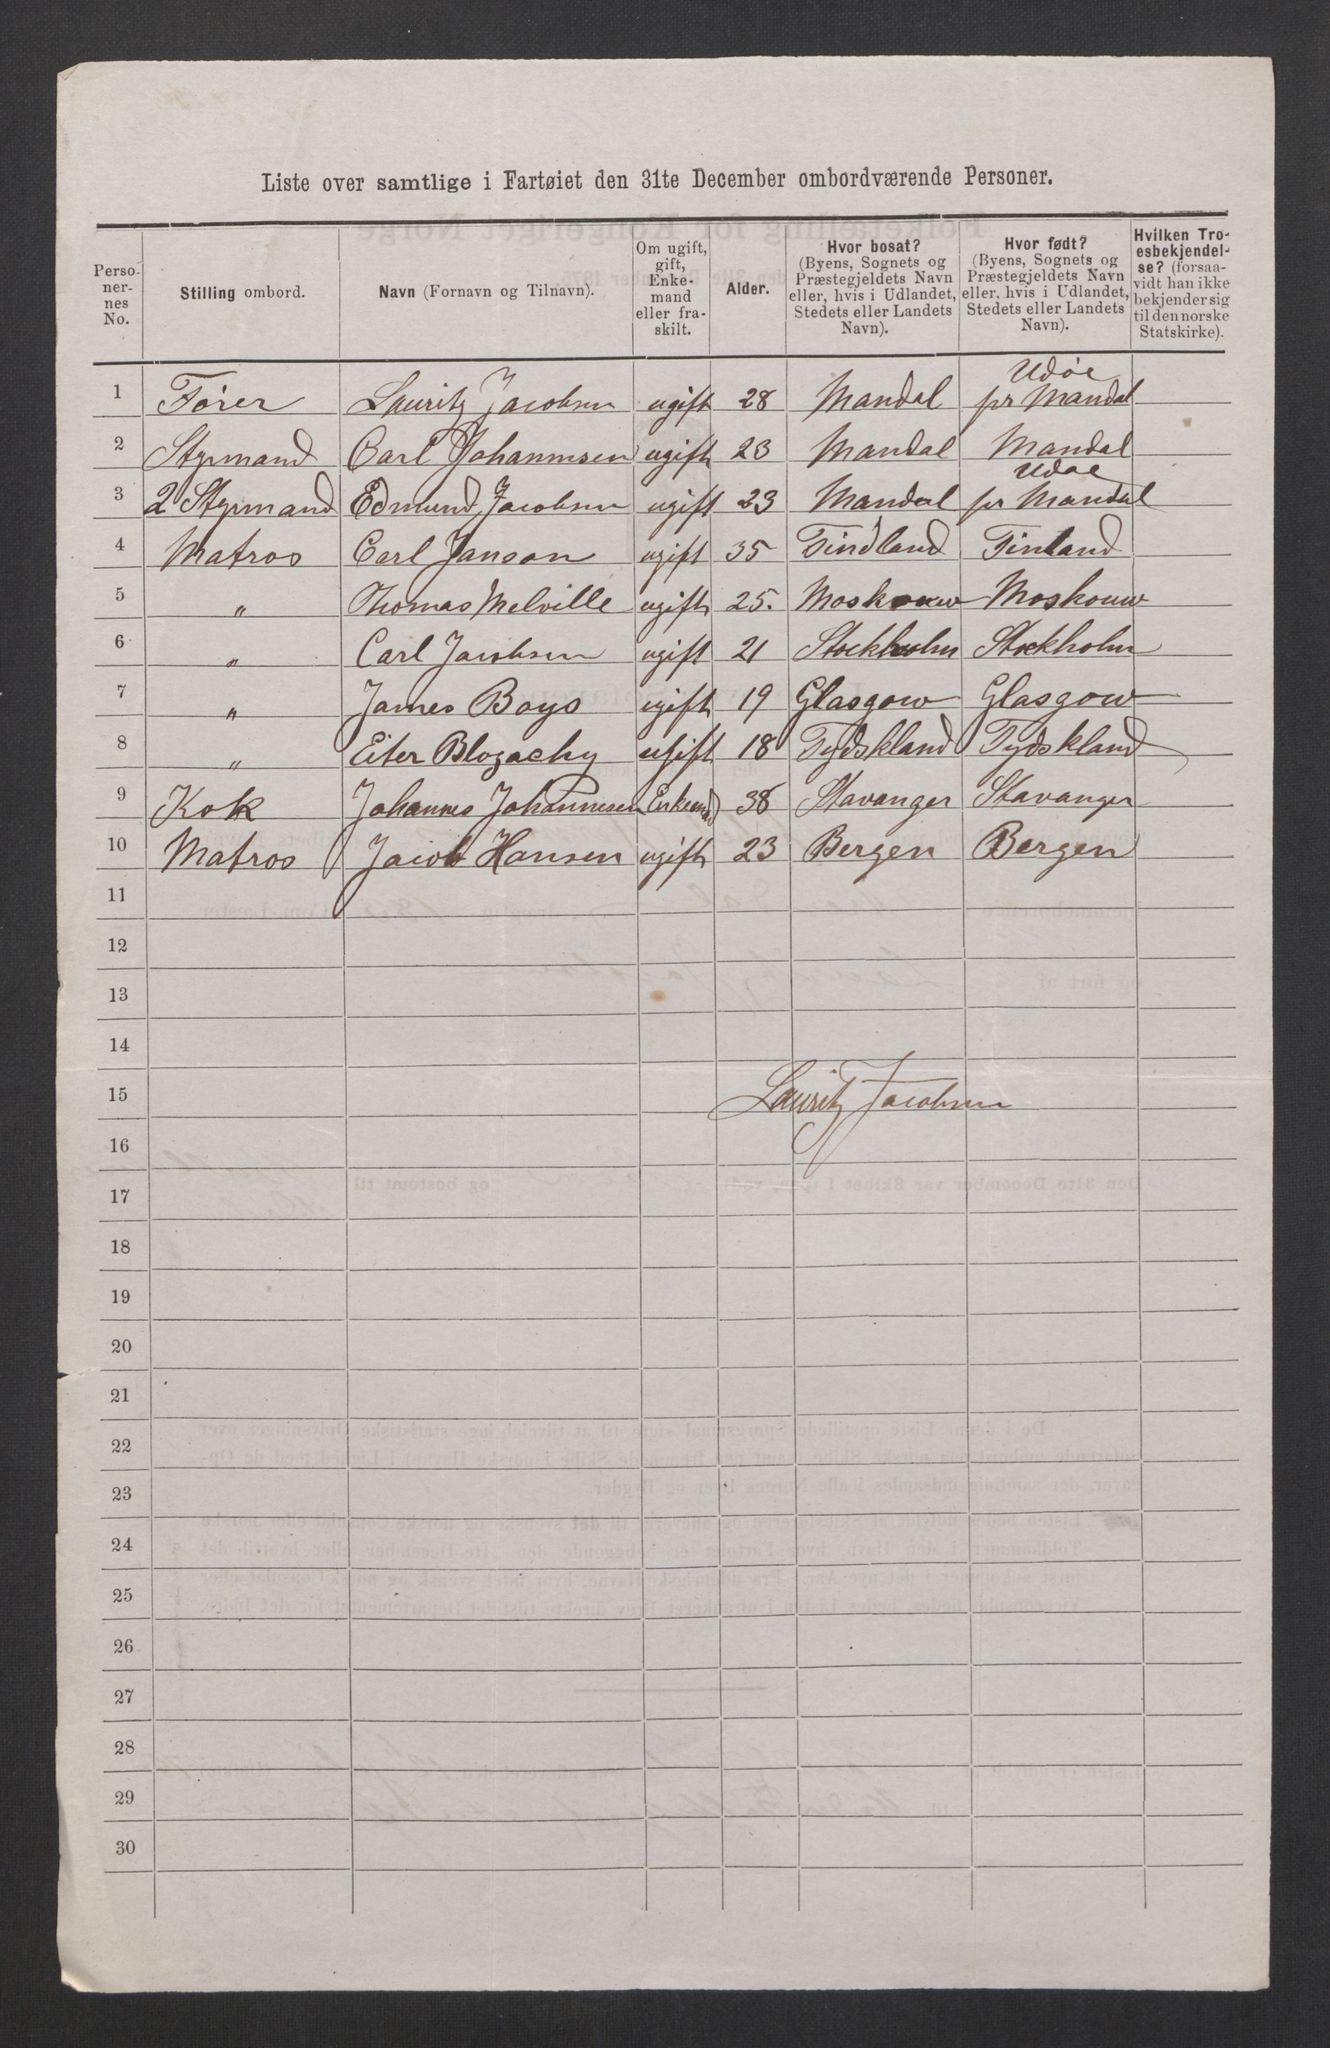 Liste over samtlige i Fartøiet den 31te December ombordværende Personer.
Perso-
ner-
nes
No.
Stilling ombord.
Navn (Fornavn og Tilnavn).
Om ugift,
gift,
Enke-
mand
eller fra-
skilt.
Alder.
Hvor bosat?
(Byens, Sognets og
Præstegjeldets Navn
eller, hvis i Udlandet,
Stedets eller Landets
Navn).
Hvor født?
(Byens, Sognets og
Præstegjeldets Navn
eller, hvis i Udlandet,
Stedets eller Landets
Navn).
Hvilken Tro-
esbekjendel-
se? (forsaa-
vidt han ikke
bekjender sig
til den norske
Statskirke).
1 Fører Lauritz Jacobsen ugift 28 Mandal Udøe pr Mandal
2 Styrmand Carl Johannesen ugift 23 Mandal Mandal
3 2 Styrmand Edmund Jacobsen ugift 23 Mandal Udøe pr Mandal
4 Matros Carl Janson ugift 35 Findland Finland
5 " Thomas Melville ugift 25. Moskouw Moskouw
6 " Carl Jacobsen ugift 21 Stockholm Stockholm
7 " James Boys ugift 19 Glasgow Glasgow
8 " Eiter Blogachy ugift 18 Tydskland Tydskland
9 Kok Johannes Johannesen Enkemand 38 Stavanger Stavanger
10 Matros Jacob Hansen ugift 23 Bergen Bergen
11
12
13
14
15 Lauritz Jacobsen
16
17
18
19
20
21
22
23
24
25
26
27
28
29
30